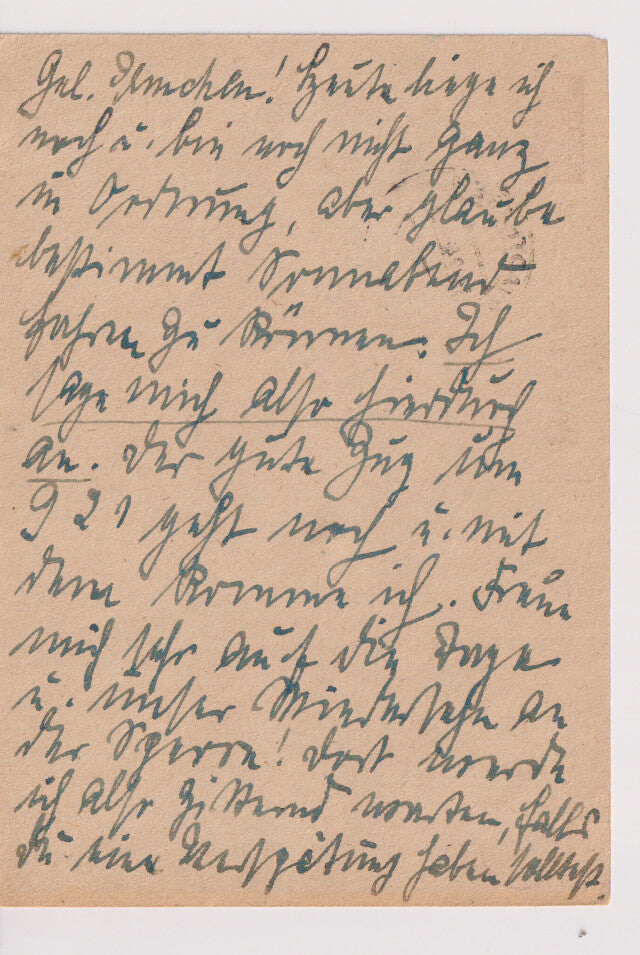 Gel. Heute liege ich
noch u. bin noch nicht ganz
in Ordnung, aber glaube
bestimmt Sonnabend
fahren zu können. Ich
sage mich also hierdurch
an. Der gute Zug um
9 21 geht noch u. mit
dem komme ich. Freue
mich sehr auf die Tage
u. unser Wiedersehn an
der Sperre! Dort werde
ich also zitternd warten, falls
du eine Verspätung haben solltest.